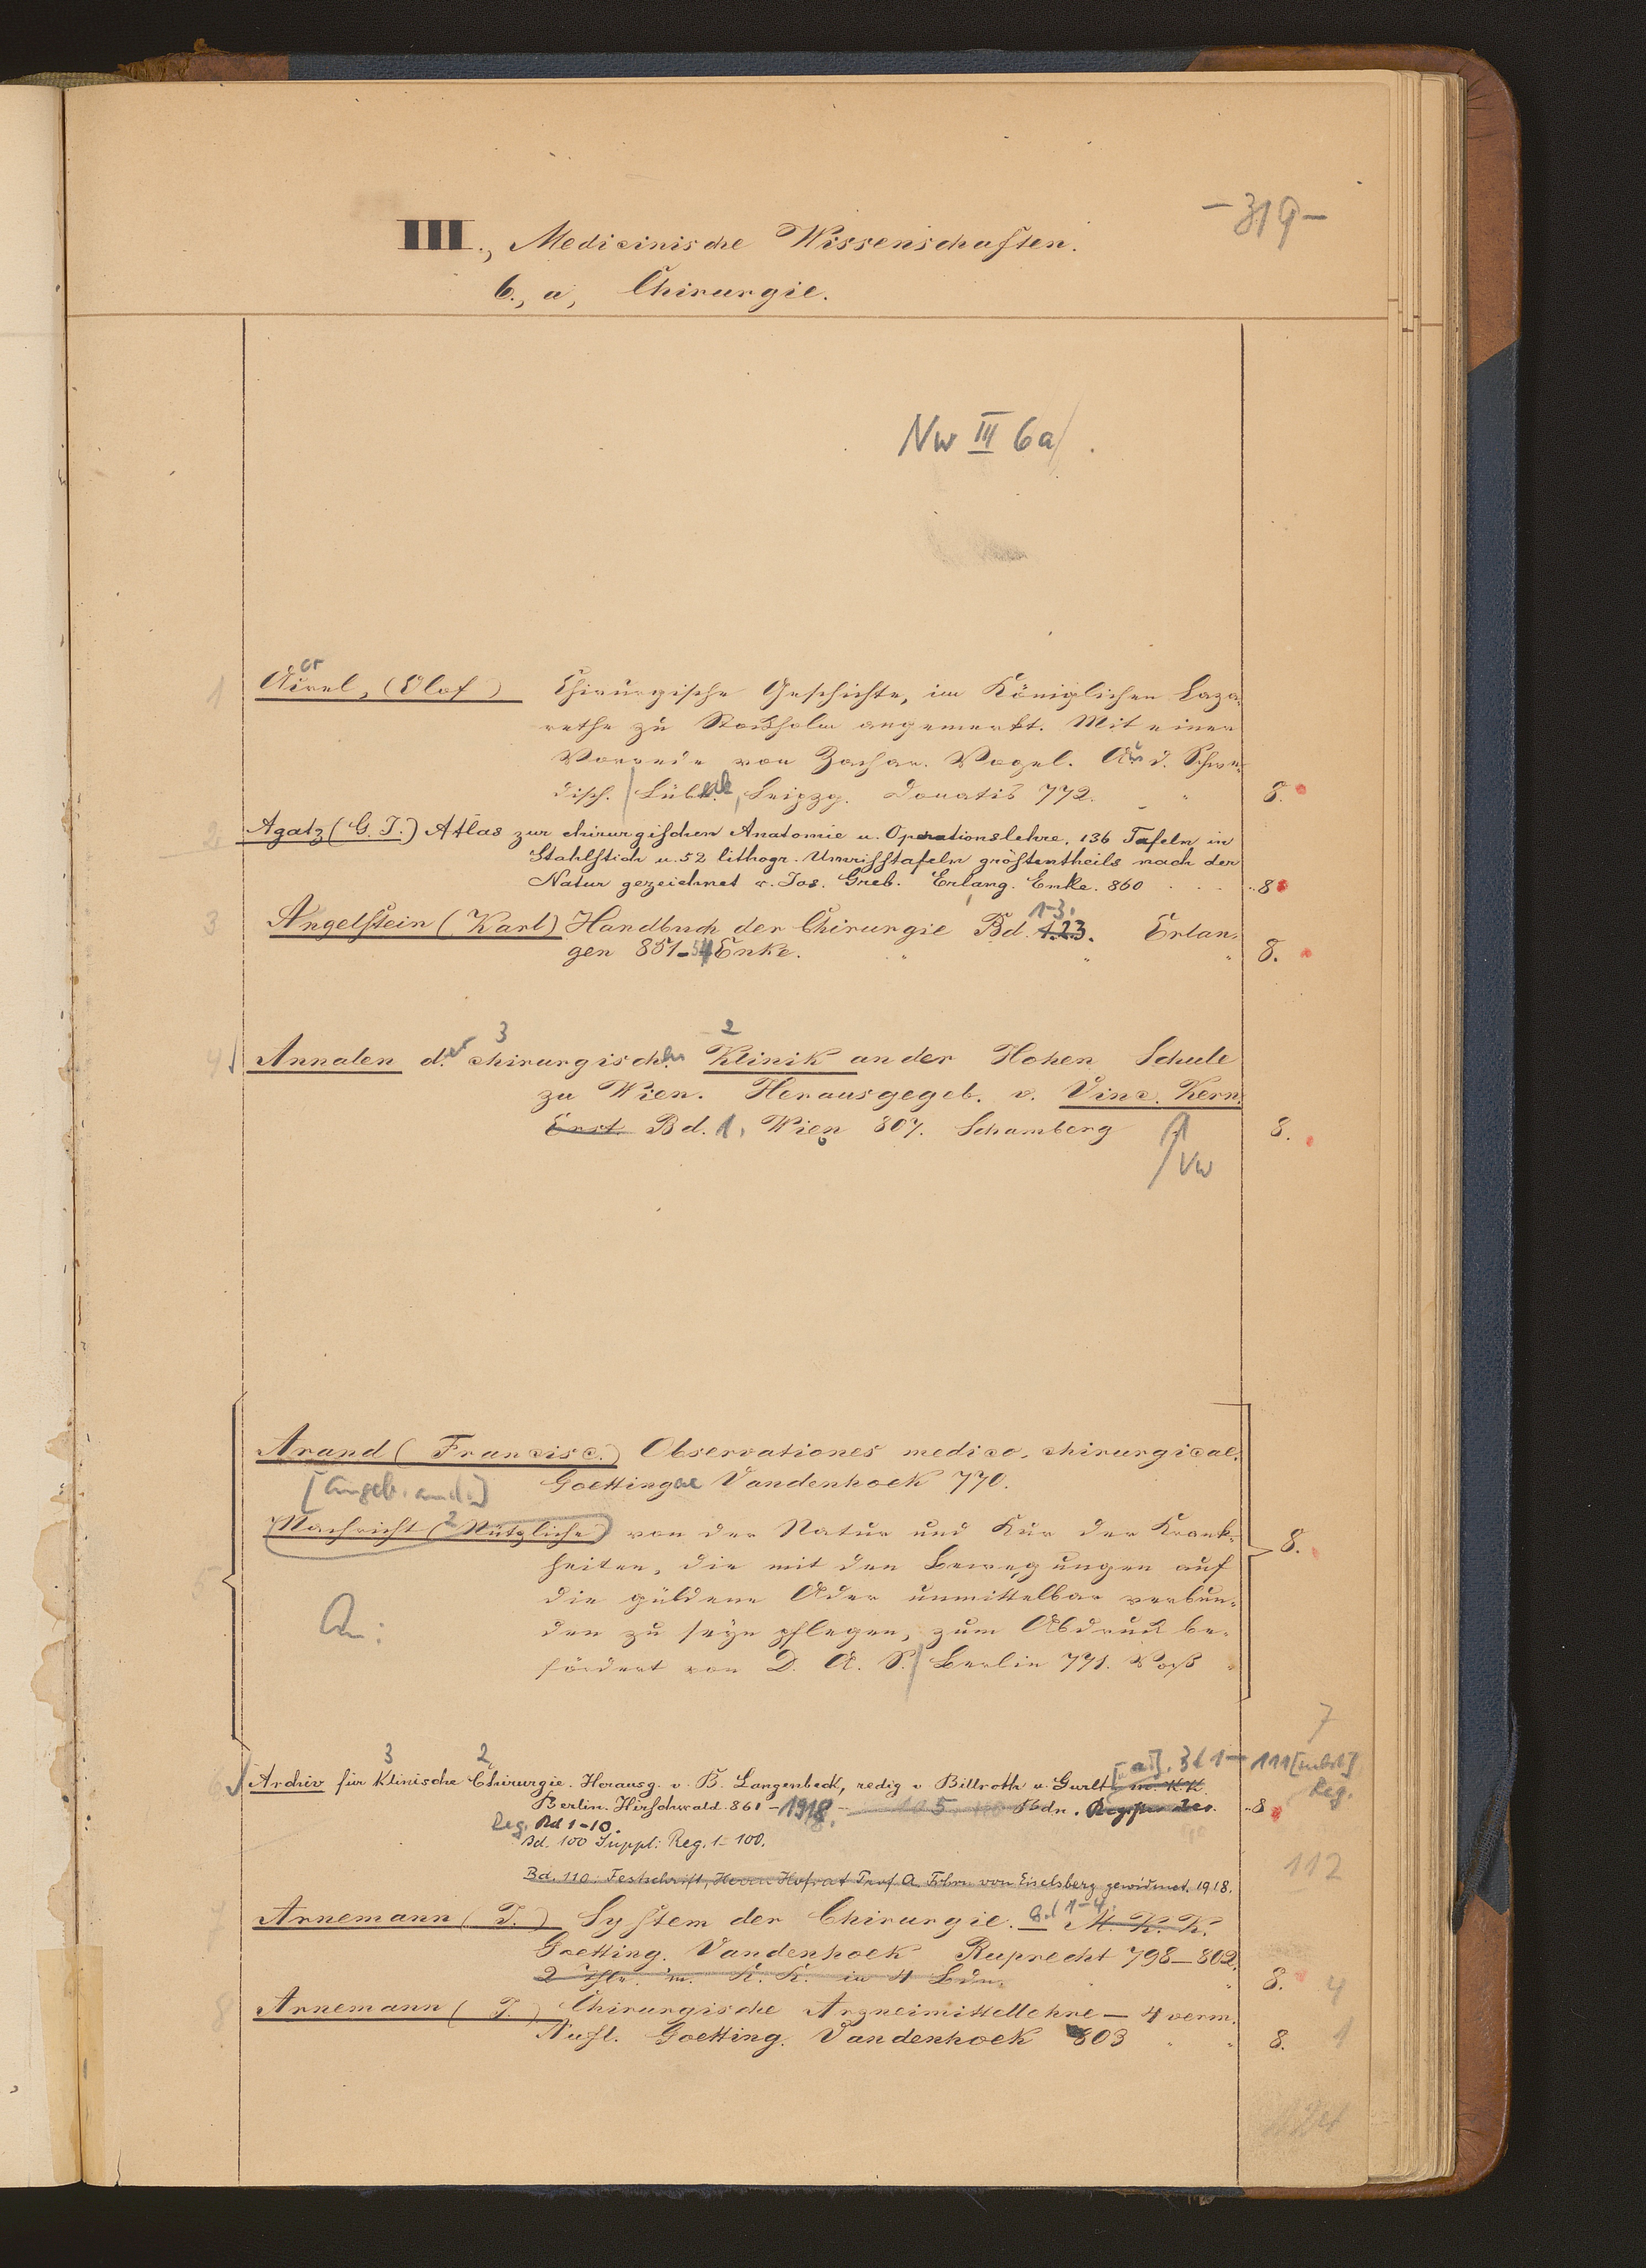 -319-
III., Medicinische Wissenschaften.
6., a, Chirurgie.
Nw III 6a/.
1 Acrel, (Olof) Chirurgische Geschichte, im Königlichen Laza-
rethe zu Stockholm angemerkt. Mit einer
Vorrede von Zachar. Vogel. Au d. Schwe-
disch. / Lübeck, Leipzg. Donatis 772. " 8.
2 Agatz (G. J.) Atlas zur chirurgischen Anatomie u. Operationslehre, 136 Tafeln in
Stahlstich u. 52 lithogr. Umrisstafeln gröstentheils nach der
Natur gezeichnet v. Jos. Greb. Erlang. Enke. 860 . . . 8
1-3.
3 Angelstein (Karl) Handbuch der Chirurgie Bd. 1.2.3. Erlan-
gen 851-54 Enke. " " " 8.
3 2
4 Annalen der chirurgischen Klinik an der Hohen Schule
zu Wien. Herausgegeb. v. Vinc. Kern.
Erst. Bd. 1, Wien 807. Schamberg 8.
Vw
Arand (Francisc.) Observationes medico, chirurgicae.
[angeb. and.:] Goettingae Vandenhoek 770.
Nachricht (2 Nützliche) von der Natur und Kur der Krank- 8.
heiten, die mit den Bewegungen auf
5 die güldene Ader unmittelbar verbun-
An: den zu seyn pflegen, zum Abdruck be-
fördert von D. A. S. / Berlin 771. Voß
7
3 2 [u. a.]. Bd 1 - 111 [nebst]
6 Archiv für Klinische Chirurgie. Herausg. v. B. Langenbeck, redig v Billroth u. Gurlt m. KK Reg.
Berlin. Hirschwald. 861 - 1918. 105 110 Bdn. Register 8
Reg. Bd 1-10.
Bd. 100 Suppl: Reg. 1-100.
112
Bd. 110: Festschrift, Herrn Hofrat Prof A. Frhrn von Eiselsberg gewidmet. 1918.
7 Arnemann (J.) System der Chirurgie. Bd 1-4. M. K. K.
Goetting. Vandenhoek Ruprecht 798-802.
2 Thle. m. K. K. in 4 Bdn. " 8. 4
8 Arnemann (J.) Chirurgische Arzneimittellehre - 4 verm.
Aufl. Goetting. Vandenhoek 803 " " 8. 1